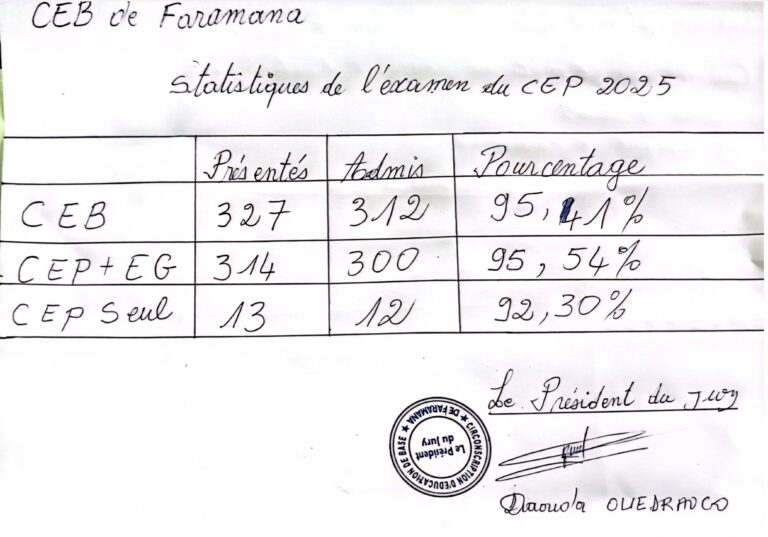 CEB de Faramana
Statistiques de l'examen du CEP 2025
Présentés Admis Pourcentage
CEB 327 312 95,41%
CEP + EG 314 300 95,54%
CEP Seul 13 12 92,30%
Le Président du Jury
CIRCONSCRIPTION D'EDUCATION DE BASE ★ DE FARAMANA ★
Le Président
du Jury
Daouda OUEDRAOGO